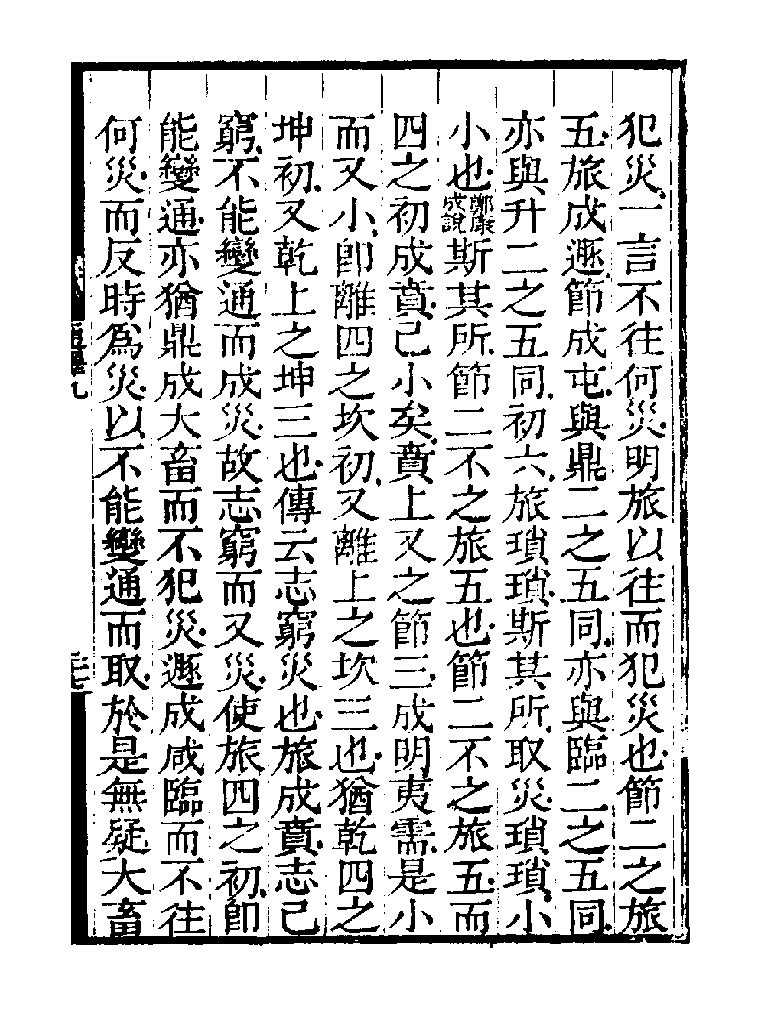 犯災一言不往何災明旅以往而犯災也節二之旅
五旅成遯節成屯與鼎二之五同亦與臨二之五同
亦與升二之五同初六旅瑣瑣斯其所取災瑣瑣小
小也鄭康成說斯其所節二不之旅五也節二不之旅五而
四之初成賁已小矣賁上又之節三成明夷需是小
而又小卽離四之坎初又離上之坎三也猶乾四之
坤初又乾上之坤三也傳云志窮災也旅成賁志已
窮不能變通而成災故志窮而又災使旅四之初卽
能變通亦猶鼎成大畜而不犯災遯成咸臨而不往
何災而反時爲災以不能變通而取於是無疑大畜